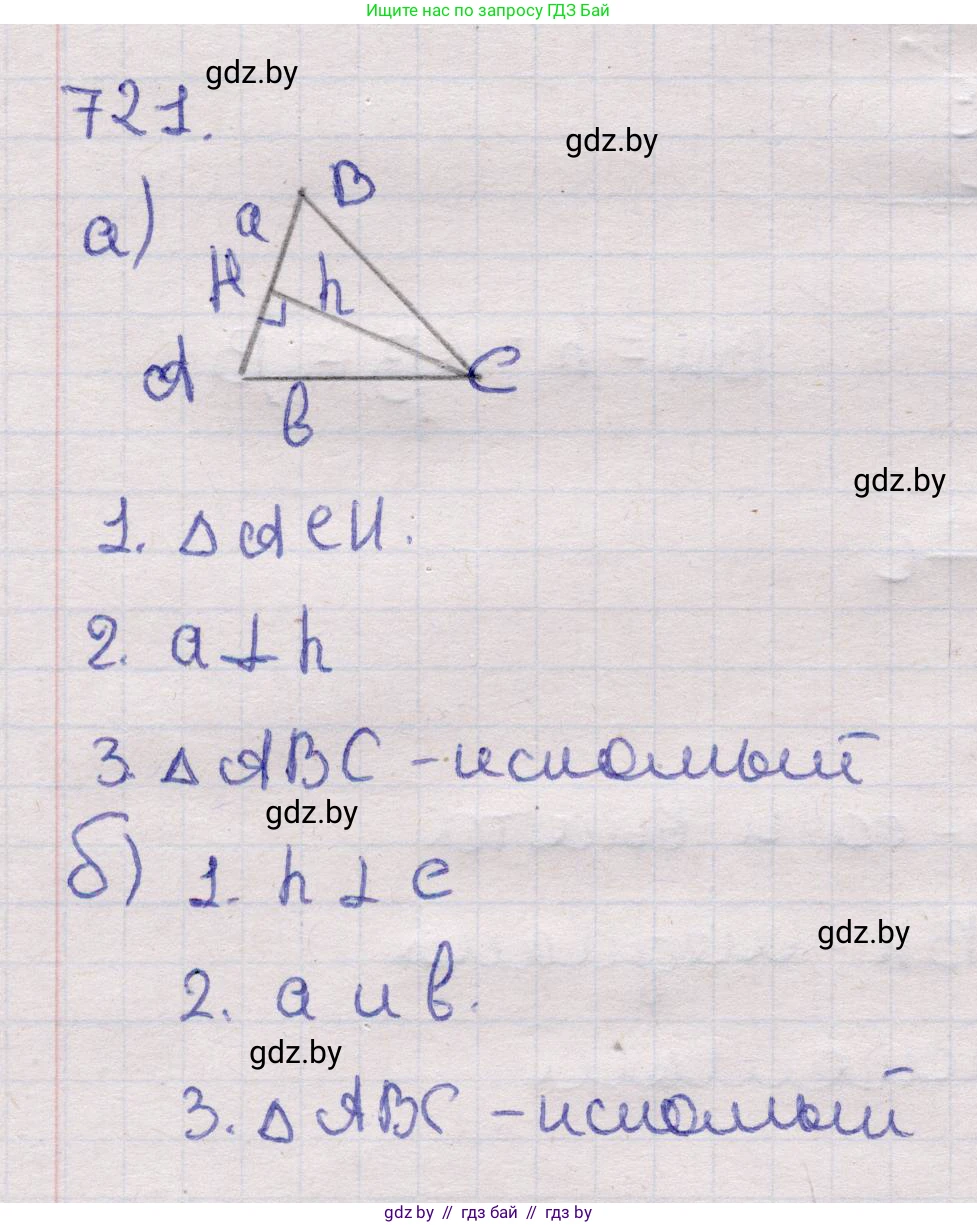 Ищите нас по запросу ГДЗ Бай
gdz.by
721.
gdz.by
а)
B
a
H
h
A
C
b
gdz.by
1. △ ACH.
2. a ⊥ h
3. △ ABC – искомый
gdz.by
б) 1. h ⊥ c
gdz.by
2. a и b.
gdz.by
3. △ ABC – искомый
gdz.by // гдз бай // гдз by